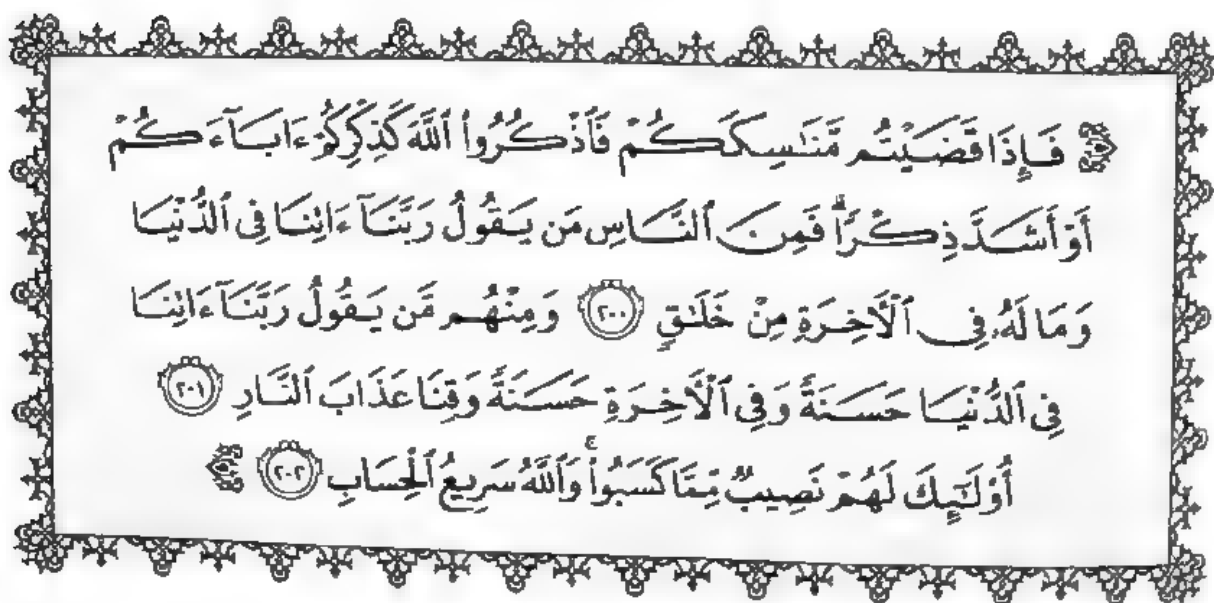 ﴿ فَإِذَا قَضَيْتُم مَّنَٰسِكَكُمْ فَٱذْكُرُوا۟ ٱللَّهَ كَذِكْرِكُمْ ءَابَآءَكُمْ
أَوْ أَشَدَّ ذِكْرًا ۗ فَمِنَ ٱلنَّاسِ مَن يَقُولُ رَبَّنَآ ءَاتِنَا فِى ٱلدُّنْيَا
وَمَا لَهُۥ فِى ٱلْأَخِرَةِ مِنْ خَلَٰقٍ ٢٠٠ وَمِنْهُم مَّن يَقُولُ رَبَّنَآ ءَاتِنَا
فِى ٱلدُّنْيَا حَسَنَةً وَفِى ٱلْأَخِرَةِ حَسَنَةً وَقِنَا عَذَابَ ٱلنَّارِ ٢٠١
أُو۟لَٰٓئِكَ لَهُمْ نَصِيبٌ مِّمَّا كَسَبُوا۟ ۚ وَٱللَّهُ سَرِيعُ ٱلْحِسَابِ ٢٠٢ ﴾